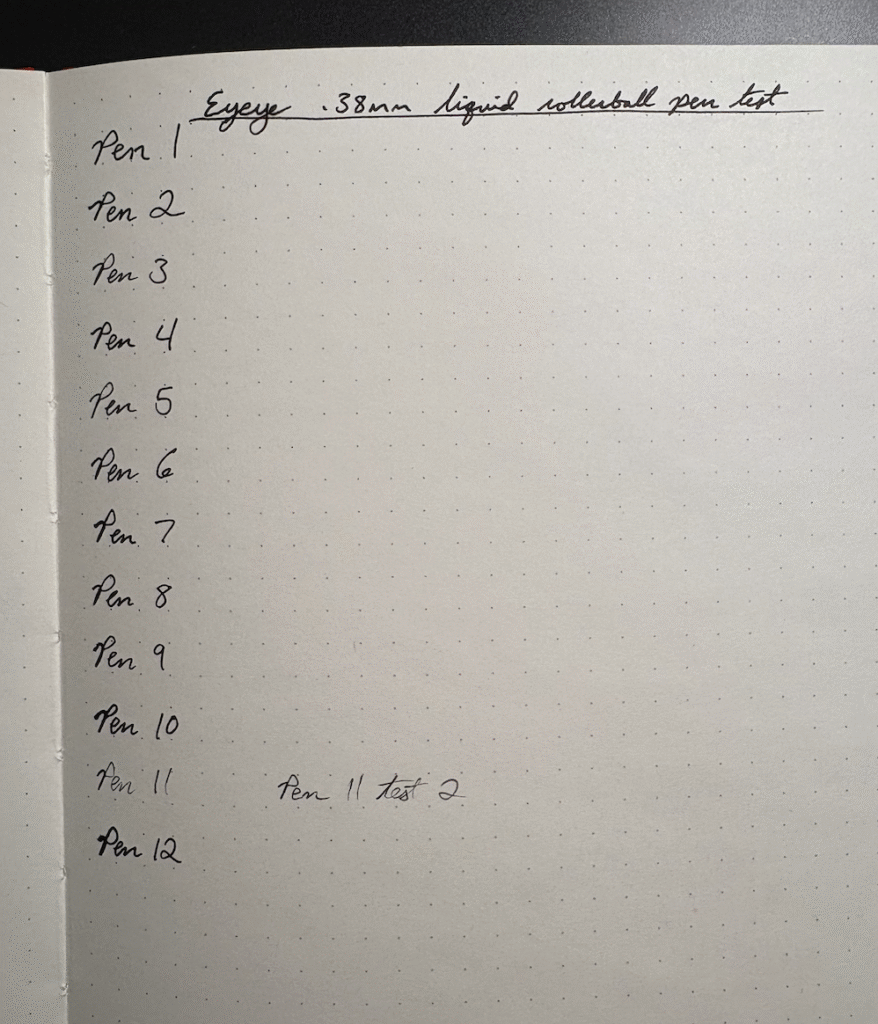 Eyeye .38mm liquid rollerball pen test
Pen 1
Pen 2
Pen 3
Pen 4
Pen 5
Pen 6
Pen 7
Pen 8
Pen 9
Pen 10
Pen 11 Pen 11 test 2
Pen 12